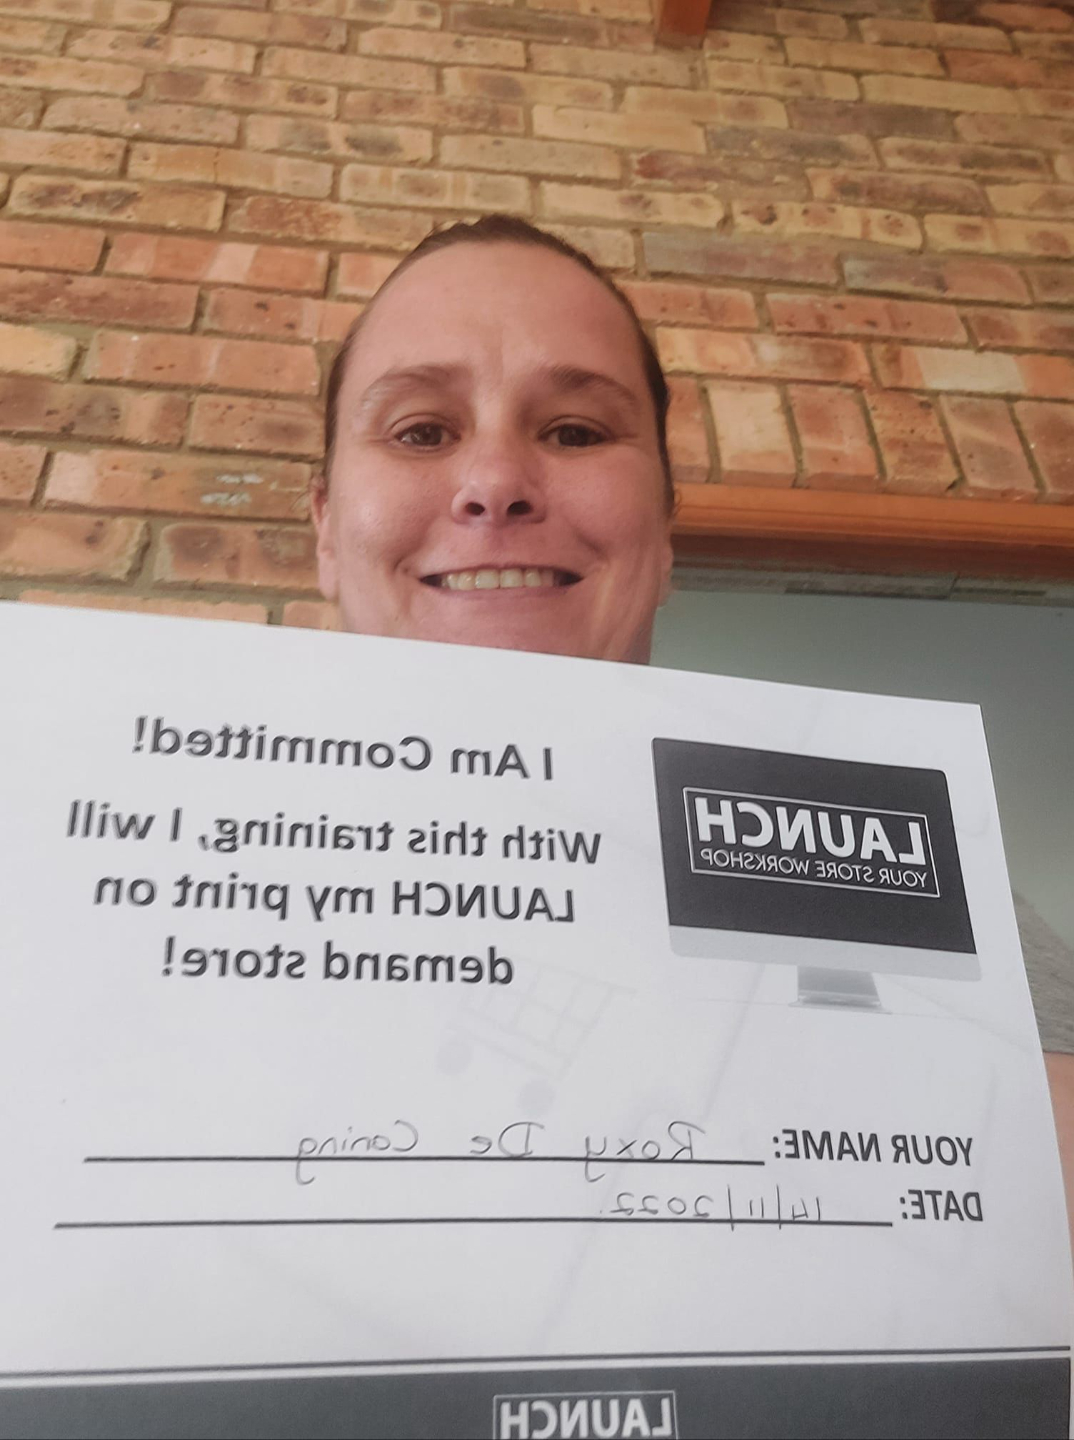 I Am Committed!
With this training, I will
LAUNCH my print on
demand store!
LAUNCH
YOUR STORE WORKSHOP
YOUR NAME: Roxy De Coning
DATE: 14/11/2022.
LAUNCH